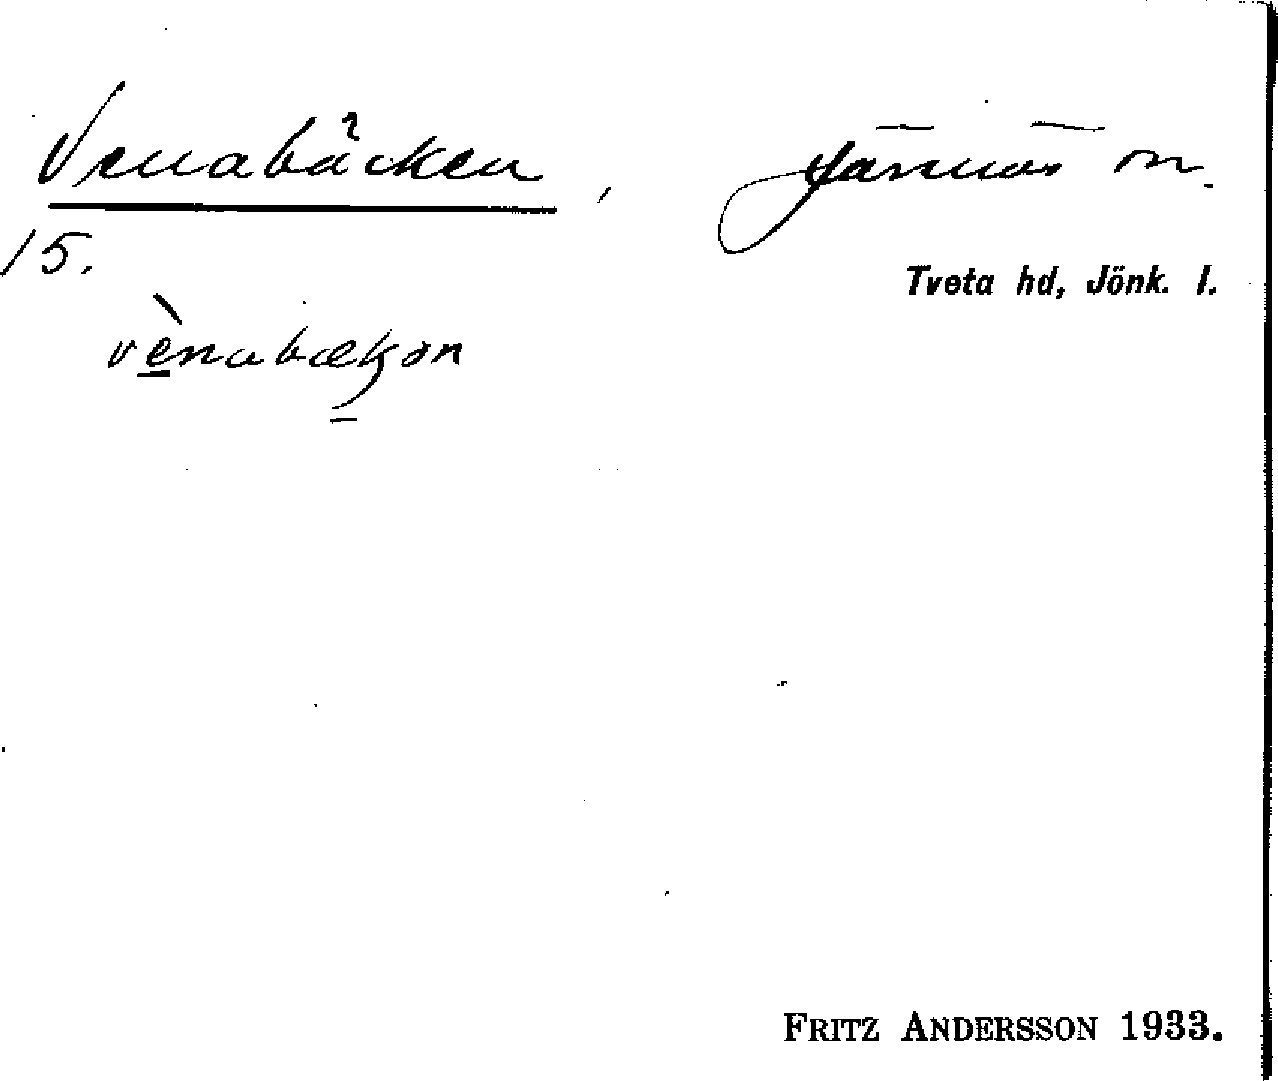 Venabäcken, Järsnäs sn.
15.
Tveta hd, Jönk. l.
vènabækən
FRITZ ANDERSSON 1933.